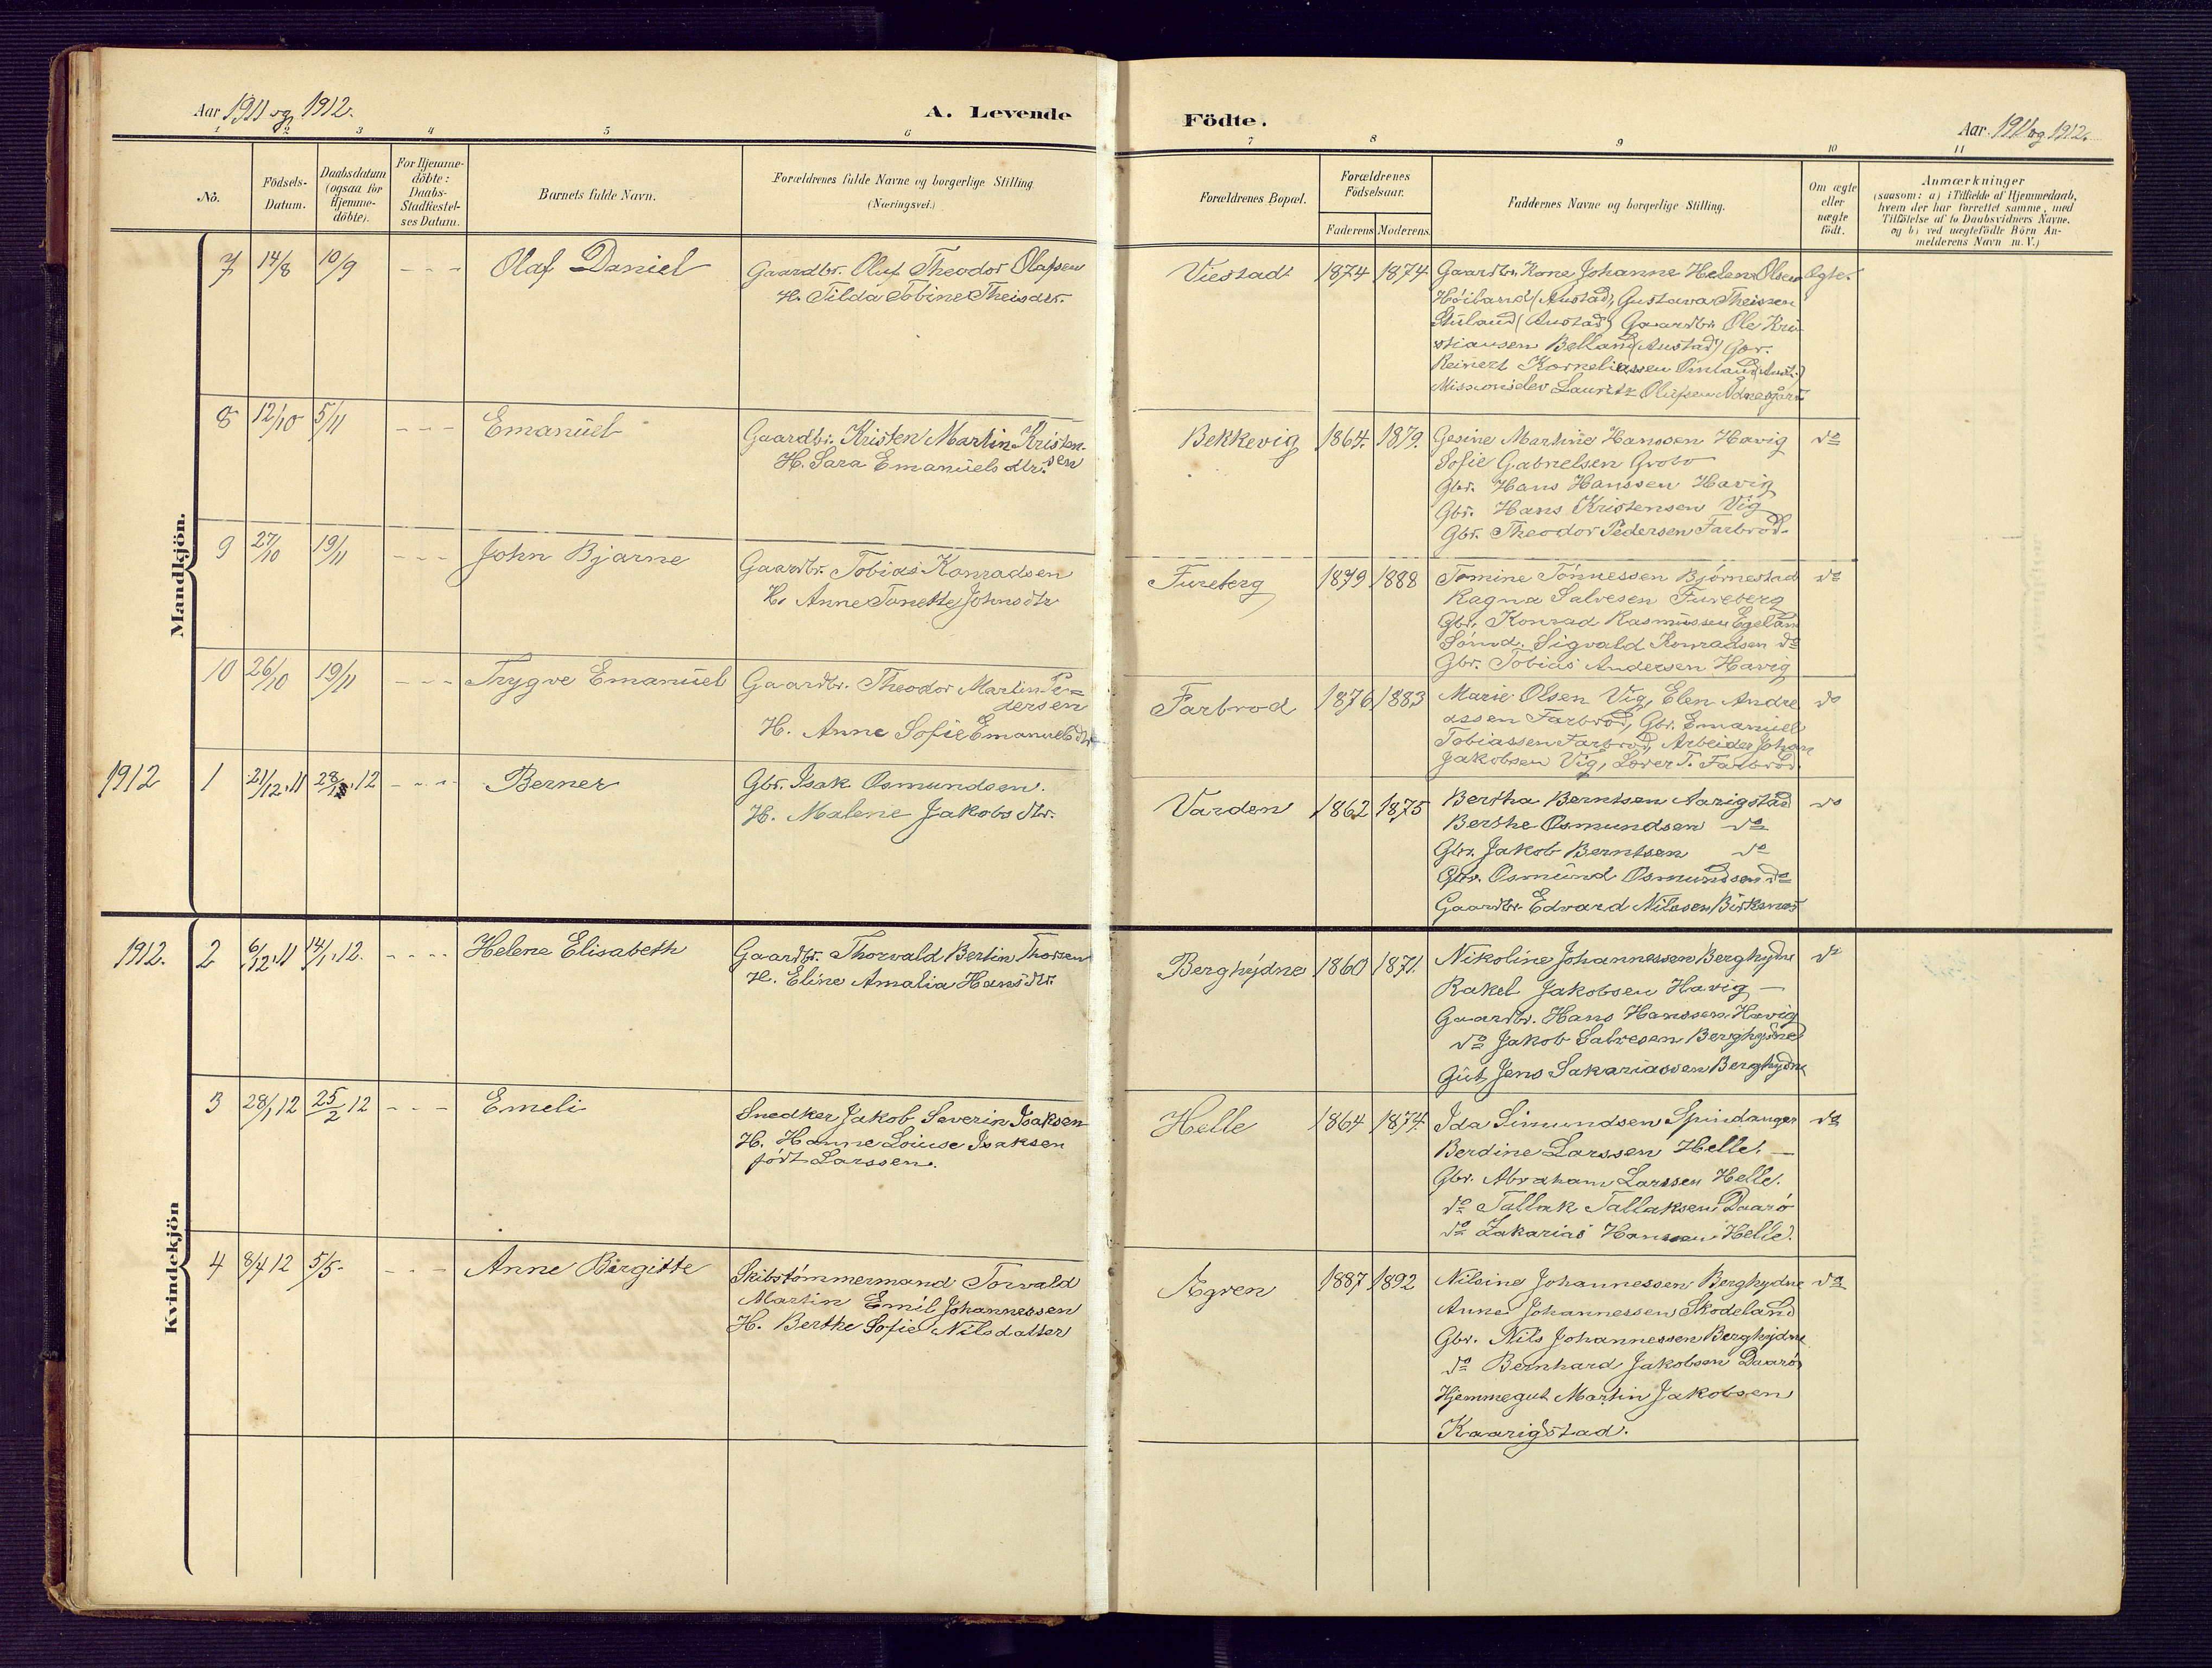 Aar 1911 og 1912.
A. Levende
Födte.
Aar. 1911 og 1912.
1 2 3 4 5 6 7 8 9 10 11
No.
Födsels-
Datum.
Daabsdatum
(ogsaa for
Hjemme-
döbte).
For Hjemme-
döbte:
Daabs-
Stadfæstel-
ses Datum.
Barnets fulde Navn.
Forældrenes fulde Navne og borgerlige Stilling
(Næringsvei.)
Forældrenes Bopæl.
Forældrenes
Födselsaar.
Faderens Moderens.
Faddernes Navne og borgerlige Stilling.
Om ægte
eller
uægte
födt.
Anmærkninger
(saasom: a) i Tilfælde af Hjemmedaab,
hvem der har forrettet samme, med
Tilföielse af to Daabsvidners Navne,
og b) ved uægtefödte Börn An-
melderens Navn m. V.)
Mandkjön.
7 14/8 10/9 - - - Olaf Daniel
Gaardbr. Oluf Theodor Olafsen
H. Tilda Tobine Theisdtr.
Viestadt 1874 1874
Gaardbr. Kone Johanne Helene Olsen
Höiland (Austad), Gustava Theissen
Stuland (Austad) Gaardbr. Ole Kri-
stiansen Belland (Austad) Gbr.
Reinert Korneliassen Omland (Aust.)
Missionselev Lauritz Olufsen
Ægte.
8 12/10 5/11 - - - Emanuel
Gaardbr. Kristen Martin Kristen-
sen
H. Sara Emanuels dtr.
Bekkevig 1864. 1879.
Gesine Martine Hanssen Havig
Sofie Gabrielsen Grobo
Gbr. Hans Hanssen Havig
Gbr. Hans Kristensen Vig
Gbr. Theodor Pedersen Farbrod.
do
9 27/10 19/11 - - - John Bjarne
Gaardbr. Tobias Konradsen
H. Anne Tonette Johnsdtr
Fureberg 1879 1888
Tomine Tönnessen Björnestad
Ragna Salvesen Fureberg
Gbr. Konrad Rasmussen Egeland
Sömd. Sigvald Konradsen do
Gbr. Tobias Andersen Havig
do
10 26/10 19/11 - - - Trygve Emanuel
Gaardbr. Theodor Martin Pe-
dersen
H. Anne Sofie Emanuelsdtr
Farbrod 1876 1883
Marie Olsen Vig, Elen Andre
assen Farbrod, Gbr. Emanuel
Tobiassen Farbrod, Arbeider Johan
Jakobsen Vig, T. Farbrod.
do
1912 1 21/12.11 28/1.12 - - - Berner
Gbr. Isak Osmundsen.
H. Malene Jakobs dtr.
Varden 1862 1875
Bertha Berntsen Aarigstad
Berthe Osmundsen do
Gbr. Jakob Berntsen do
Gbr. Osmund Osmundsen do
Gaardbr. Edvard Nilssen Birkenes
do
Kvindekjön
1912. 2 6/12.11 14/1.12. - - - - Helene Elisabeth
Gaardbr. Thorvald Bertin Thorsen
H. Eline Amalia Hansdtr.
Berghydne 1860 1871.
Nikoline Johannessen Berghydne
Rakel Jakobsen Havig -
Gaardbr. Hans Hanssen Havig
do Jakob Salvesen Berghydne
Gut Jens Sakariassen Berghydne
do
3 28/1 12 25/2 12 - - - Emeli
Snedker Jakob Severin Isaksen
H. Hanne Louise Isaksen
födt Larssen.
Helle 1864 1874
Ida Simundsen Spindanger
Berdine Larssen Helle. -
Gbr. Abraham Larssen Helle.
do Tallak Tallaksen Daarö
do Zakarias Hanssen Helle.
do
4 8/4 12 5/5. - - - Anne Birgitte
Skibstömmermand Torvald
Martin Emil Johannessen
H. Berthe Sofie Nilsdatter
Agren 1887 1892
Nilsine Johannessen Berghydne
Anne Johannessen Skodeland
Gbr. Nils Johannessen Berghydne
do Bernhard Jakobsen Daarö
Hjemmegut Martin Jakobsen
Kaarigstad.
do